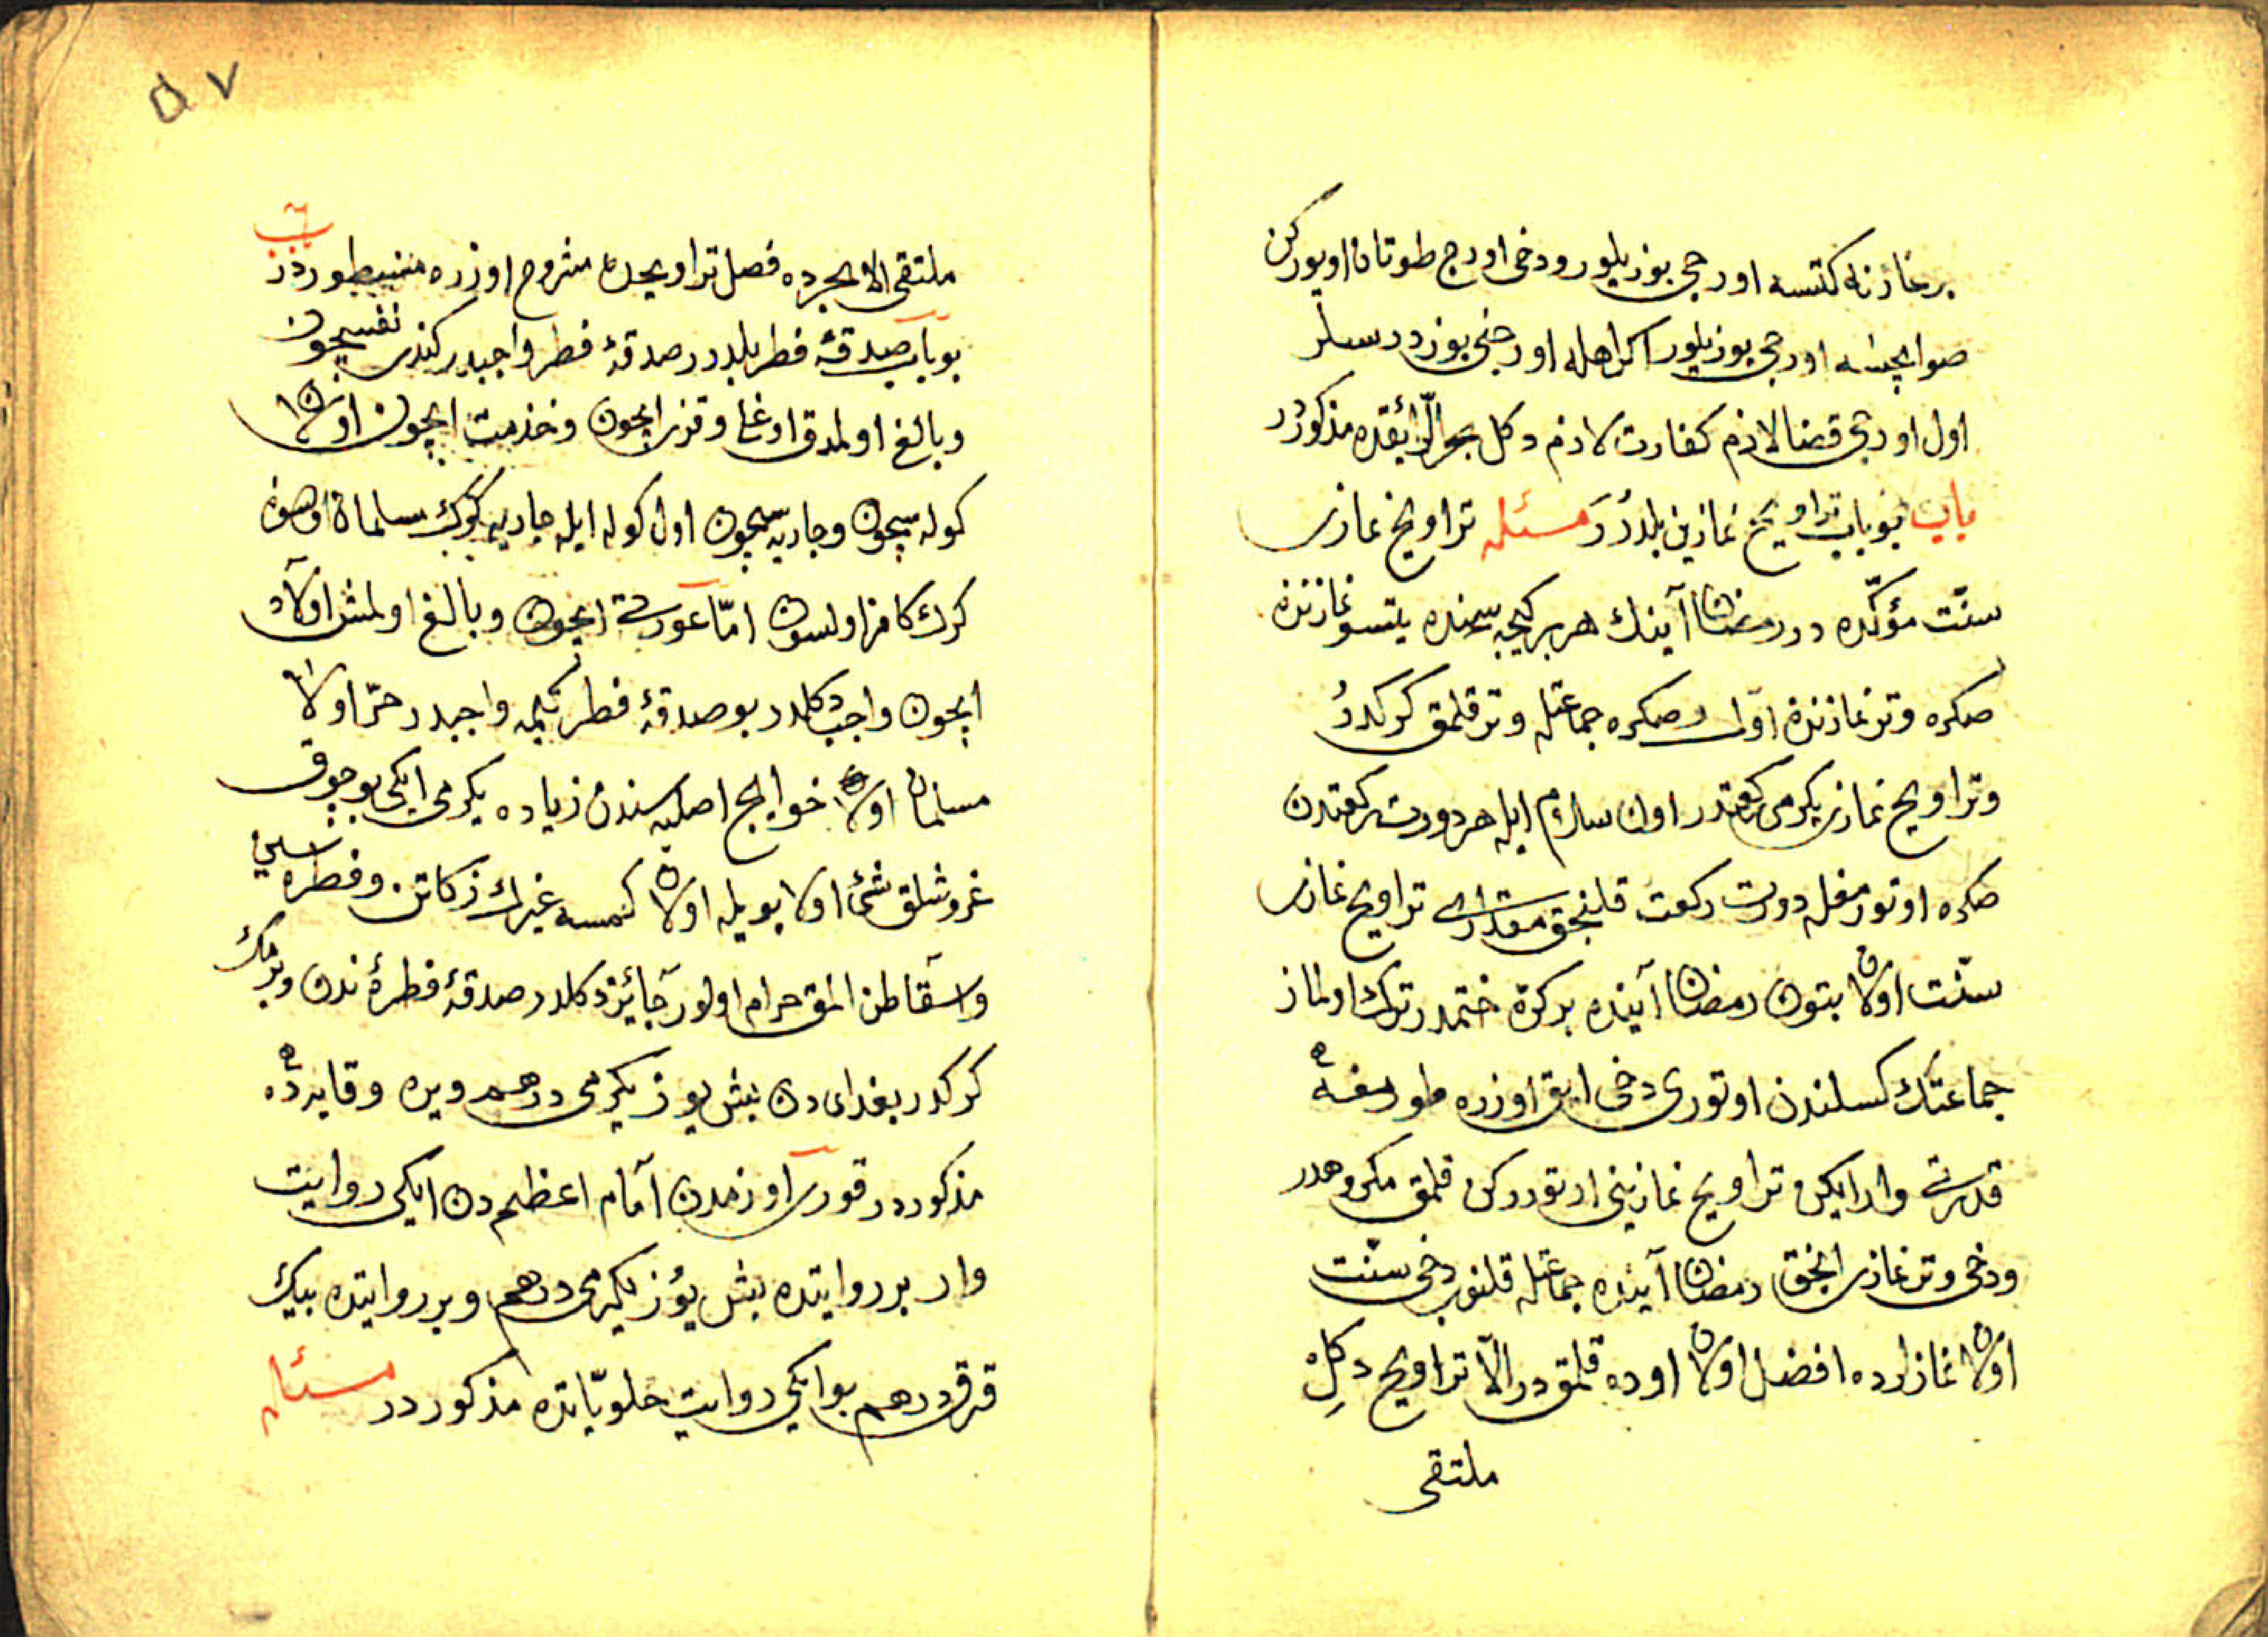 بوغازنه كتسه اورجى بوزيلور ودخى اورج طوتان اويوركن
صو ايچسه اورجى بوزيلور اكراهله اورجنى بوزدرسلر
اول اورجى قضا لازم كفارت لازم دكل بحر الرائقده مذكوردر
باب بو باب تراويح نمازين بلدرر مسئله تراويح نمازى
سنّت مؤكّده در رمضان آينك هر بر كيجه سنده يتسو نمازندن
صكره وتر نمازندن اوّل وصكره جماعتله وتر قلمق كركدر
وتراويح نمازى يكرمى ركعتدر اون سلام ايله هر دورت ركعتدن
صكره اوتورمغله دورت ركعت قلنجق مقدارى تراويح نمازى
سنّت اولان بتون رمضان آينده بر كرّه ختمدر ترك اولنماز
جماعتك كسلندن اوتورى دخى ايق اوزره طورمغه
قدرتى وار ايكن تراويح نمازينى اوتوردركن قلمق مكروهدر
ودخى وتر نمازى انجق رمضان آينده جماعتله قلنور دخى سنّت
اولان نمازلرده افضل اولان اوده قلمقدر الّا تراويح دكل
ملتقى
٥٧
ملتقى الابحرده فصل تراويحده مشروح اوزره مضبطوردر باب
بو باب صدقۀ فطر بلدرر صدقۀ فطر واجبدر كندى نفسيچون
وبالغ اولمدق اوغلى وقزى ايچون وخذمت ايچون اولان
كوله سيچون وجاريه سيچون اول كوله ايله جاريه كرك مسلمان اولسون
كرك كافر اولسون امّا عورتى ايچون وبالغ اولمش اولاد
ايچون واجب دكلدر بو صدقۀ فطر كيمه واجبدر حرّ اولا
مسلمان اولا خوايج اصليه سندن زياده يكرمى ايكى بوچوق
غروشلق شئ اولا بويله اولان كمسه غيرك زكاتن وفطره سين
واسقاطن المق حرام اولور جائز دكلدر صدقۀ فطرۀ ندن ويرمك
كركدر بغداى دن بش يوز يكرمى درهم ويره وقايه ده
مذكوردر قورى اوزمدن امام اعظم دن ايكى روايت
وار بر روايتده بش يوز يكرمى درهم وبر روايتده بيك
قرق درهم بو ايكى روايت حلويّاتده مذكوردر مسئله